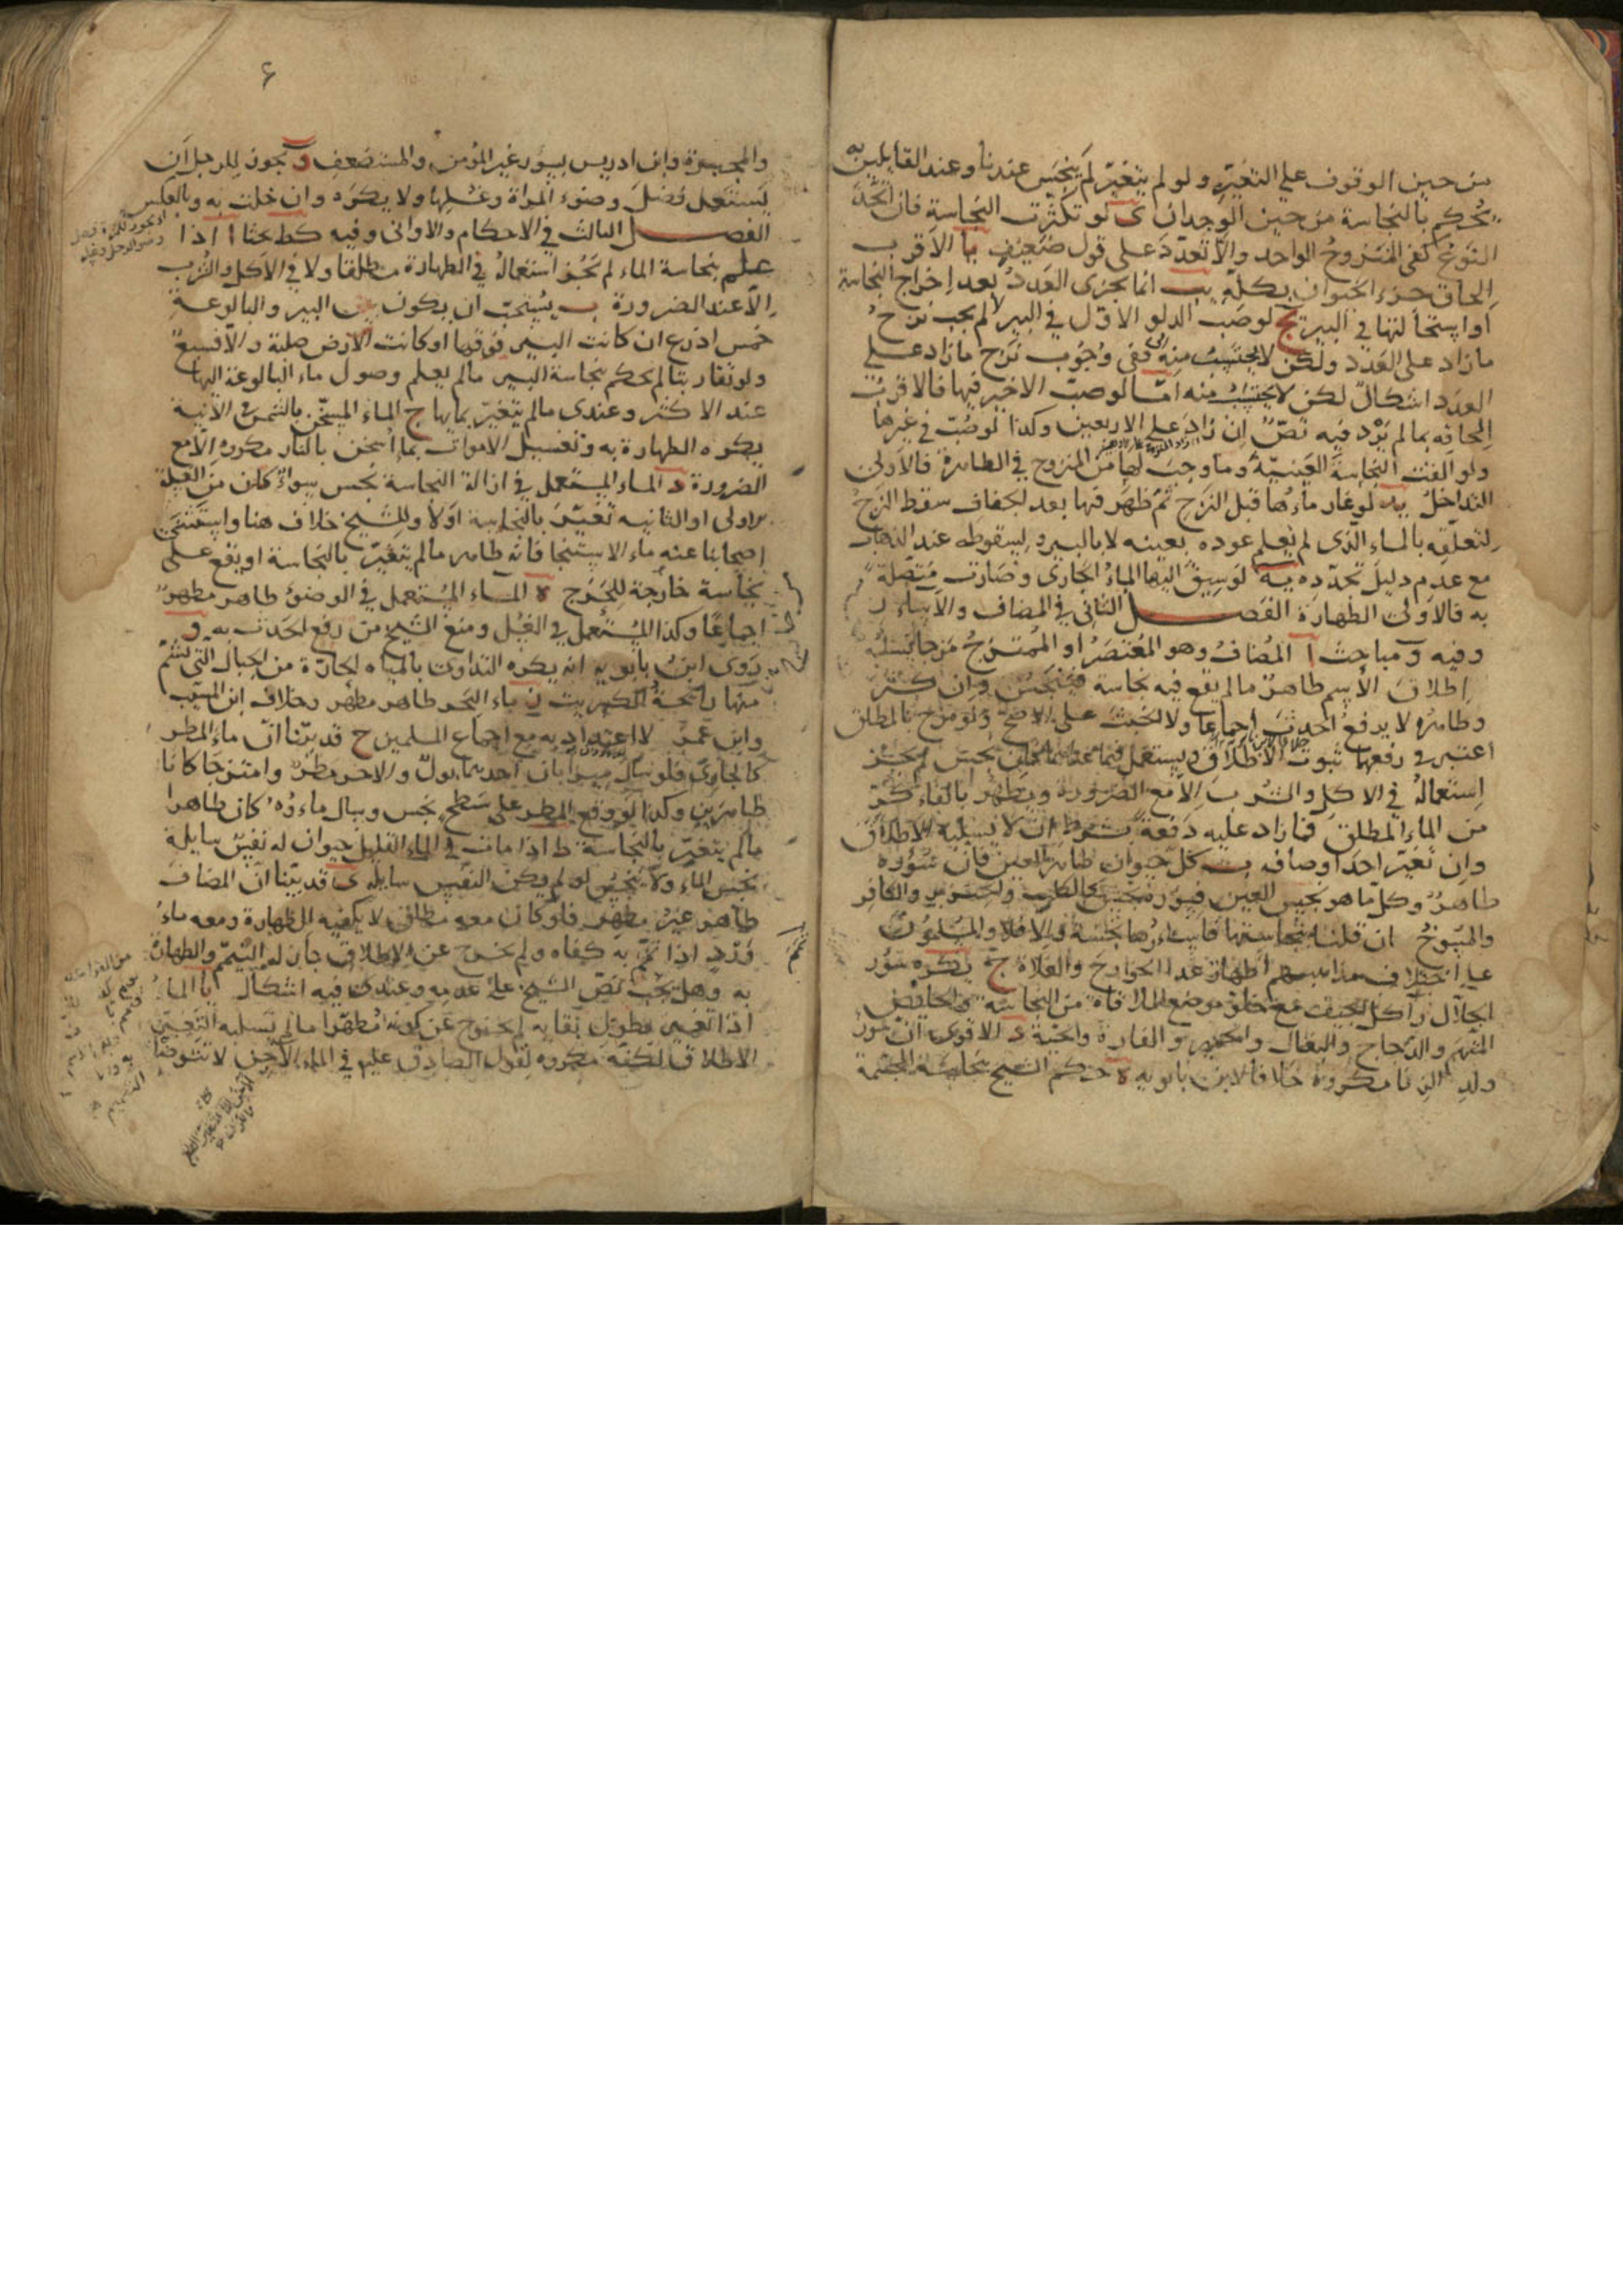 من حين الوقوف على التغيّر ولو لم يتغيّر لم ينجس عندنا وعند القايلين به
يُحكم بالنجاسة من حين الوجدان ى لو تكثرت النجاسة فان اتحد
النوع كفى المنزوح الواحد والا تعدد على قول ضعيف يا الاقرب
الحاق جزء الحيوان بكله يب انما يجزى العدد بعد اخراج النجاسة
او استحالتها في البير يج لو صب الدلو الاول في البير لم يجب نزح
ما زاد على العدد ولكن لا يحتسب منه وفي وجوب نزح ما زاد على
العدد اشكال لكن لا يحتسب منه امّا لو صب الاخير فيها فالاقرب
الحاقه بما لم يرد فيه نصّ ان زاد على الاربعين وكذا لو صُبّ في غيرها
ولو القت النجاسة العينيّة وما وجب لها من المنزوح في الطاهرة فالاولى
التداخل يد لو غار ماؤها قبل النزح ثم ظهر فيها بعد الجفاف سقط النزح
لتعلّقه بالماء الّذى لم يعلم عوده بعينه لا بالبير ولسقوطه عند الذهاب
مع عدم دليل تجدّده يه لو سيق اليها الماء الجارى وصارت متصلة
به فالاولى الطهارة الفصل الثانى في المضاف والاسئار
وفيه و مباحث ا المضاف وهو المعتصر او الممتزج مزجا يسلبه
اطلاق الاسم طاهر ما لم يقع فيه نجاسة فينجس وان كثر
وطاهره لا يرفع الحدث اجماعا ولا الخبث على الاصح ولو مزج بالمطلق
اعتبر في رفعهما ثبوت الاطلاق
استعماله في الاكل والشرب الا مع الضرورة ويطهر بالقاء كر
من الماء المطلق فما زاد عليه دفعة بشرط ان لا يسلبه الاطلاق
وان تغيّر احد اوصافه ب كل حيوان طاهر العين فان سؤره
طاهر وكل ما هو نجس العين فسؤره نجس كالكلب والخنزير والكافر
والمسوخ ان قلنا بنجاستها فاسئارها نجسة والا فلا والمسلمون
على اختلاف مذاهبهم اطهار عدا الخوارج والغلاة ج يكره سؤر
الجلال وآكل الجيف مع خلو موضع الملاقاة من النجاسة والحايض
المتهمة والدجاج والبغال والحمير والفارة والحية د الاقوى ان سؤر
ولد الزنا مكروه خلافا لابن بابويه ه حكم الشيخ بنجاسة المجسمة
٤
والمجبرة وابن ادريس بسؤر غير المؤمن والمستضعف و يجوز للرجل ان
يستعمل فضل وضوء المراة وغسلها ولا يكره وان خلت به وبالعكس
الفصل الثالث في الاحكام والاوانى وفيه كط بحثا ا اذا
علم بنجاسة الماء لم يجز استعماله في الطهارة مطلقا ولا في الاكل والشرب
الّا عند الضرورة ب يستحب ان يكون بين البير والبالوعة
خمس اذرع ان كانت البير فوقها او كانت الارض صلبة والا فسبع
ولو تقاربتا لم يحكم بنجاسة البير ما لم يعلم وصول ماء البالوعة اليها
عند الاكثر وعندى ما لم يتغيّر بمايها ج الماء المسخن بالشمس في الآنية
يكره الطهارة به وتغسيل الاموات بما اسخن بالنار مكروه الّا مع
الضرورة د الماء المستعمل في ازالة النجاسة نجس سواء كان من الغسلة
الاولى او الثانيه تغيّر بالنجاسة اولا وللشيخ خلاف هنا واستثنى
اصحابنا عنه ماء الاستنجا فانه طاهر ما لم يتغيّر بالنجاسة او يقع على
نجاسة خارجة للمخرج ه الماء المستعمل في الوضوء طاهر مطهر
اجماعًا وكذا المستعمل في الغسل ومنع الشيخ من رفع الحدث به و
روى ابن بابويه انه يكره التداوى بالمياه الحارّة من الجبال التى يشم
منها رايحة الكبريت ز ماء البحر طاهر مطهر وخلاف ابن المسيب
وابن عمر لا اعتداد به مع اجماع المسلمين ح قد بيّنا ان ماء المطر
كالجارى فلو سال ميزابان احدهما بول والاخر مطر وامتزجا كانا
طاهرين وكذا لو وقع المطر على سطح نجس وسال ماءوه كان طاهرا
ما لم يتغير بالنجاسة ط اذا مات في الماء القليل حيوان له نفس سايلة
نجس الماء ولا ينجس لو لم يكن النفس سايله ى قد بيّنا ان المضاف
طاهر غير مطهر فلو كان معه مطلق لا يكفيه للطهارة ومعه ماء
ورد اذا تمّمه به كفاه ولم يخرج عن الاطلاق جاز له التيمّم والطهارة
به وهل يجب نصّ الشيخ على عدمه وعندى فيه اشكال يا الماء
اذا تغير بطول بقايه لم يخرج عن كونه مُطهّرا ما لم يسلبه التغيير
الاطلاق لكنه مكروه لقول الصادق عليم في الماء الآجن لا تتوضأ